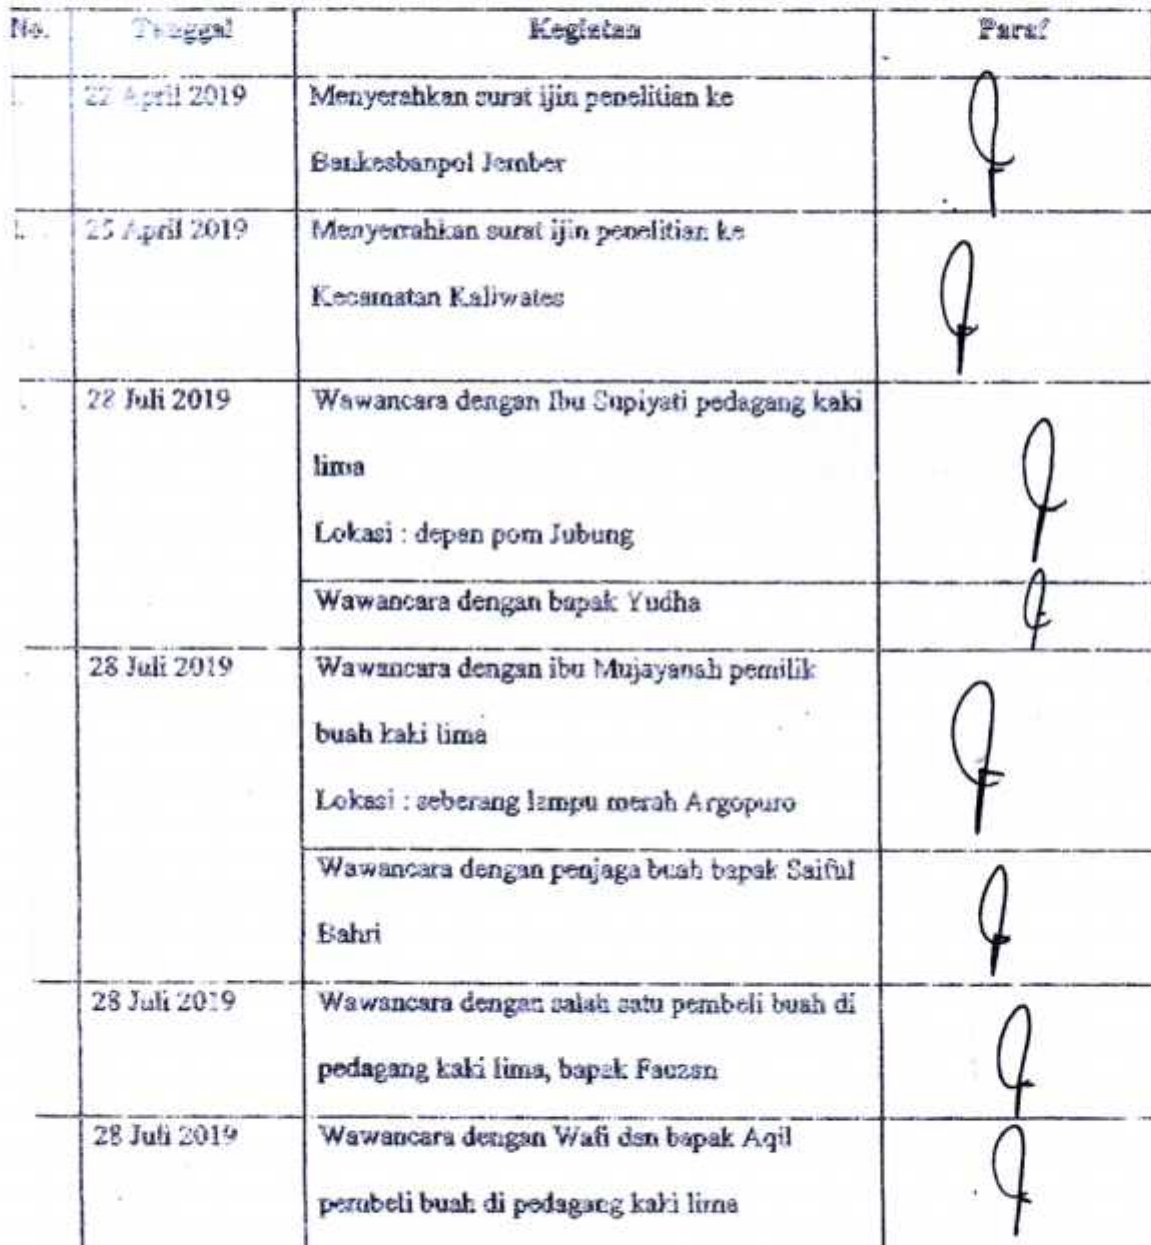 No. Tanggal Kegiatan Paraf
22 April 2019 Menyerahkan surat ijin penelitian ke
Bankesbanpol Jember
25 April 2019 Menyerrahkan surat ijin penelitian ke
Kecamatan Kaliwates
28 Juli 2019 Wawancara dengan Ibu Supiyati pedagang kaki
lima
Lokasi : depan pom Jubung
Wawancara dengan bapak Yudha
28 Juli 2019 Wawancara dengan ibu Mujayanah pemilik
buah kaki lima
Lokasi : seberang lampu merah Argopuro
Wawancara dengan penjaga buah bapak Saiful
Bahri
28 Juli 2019 Wawancara dengan salah satu pembeli buah di
pedagang kaki lima, bapak Fauzan
28 Juli 2019 Wawancara dengan Wafi dan bapak Aqil
pembeli buah di pedagang kaki lima